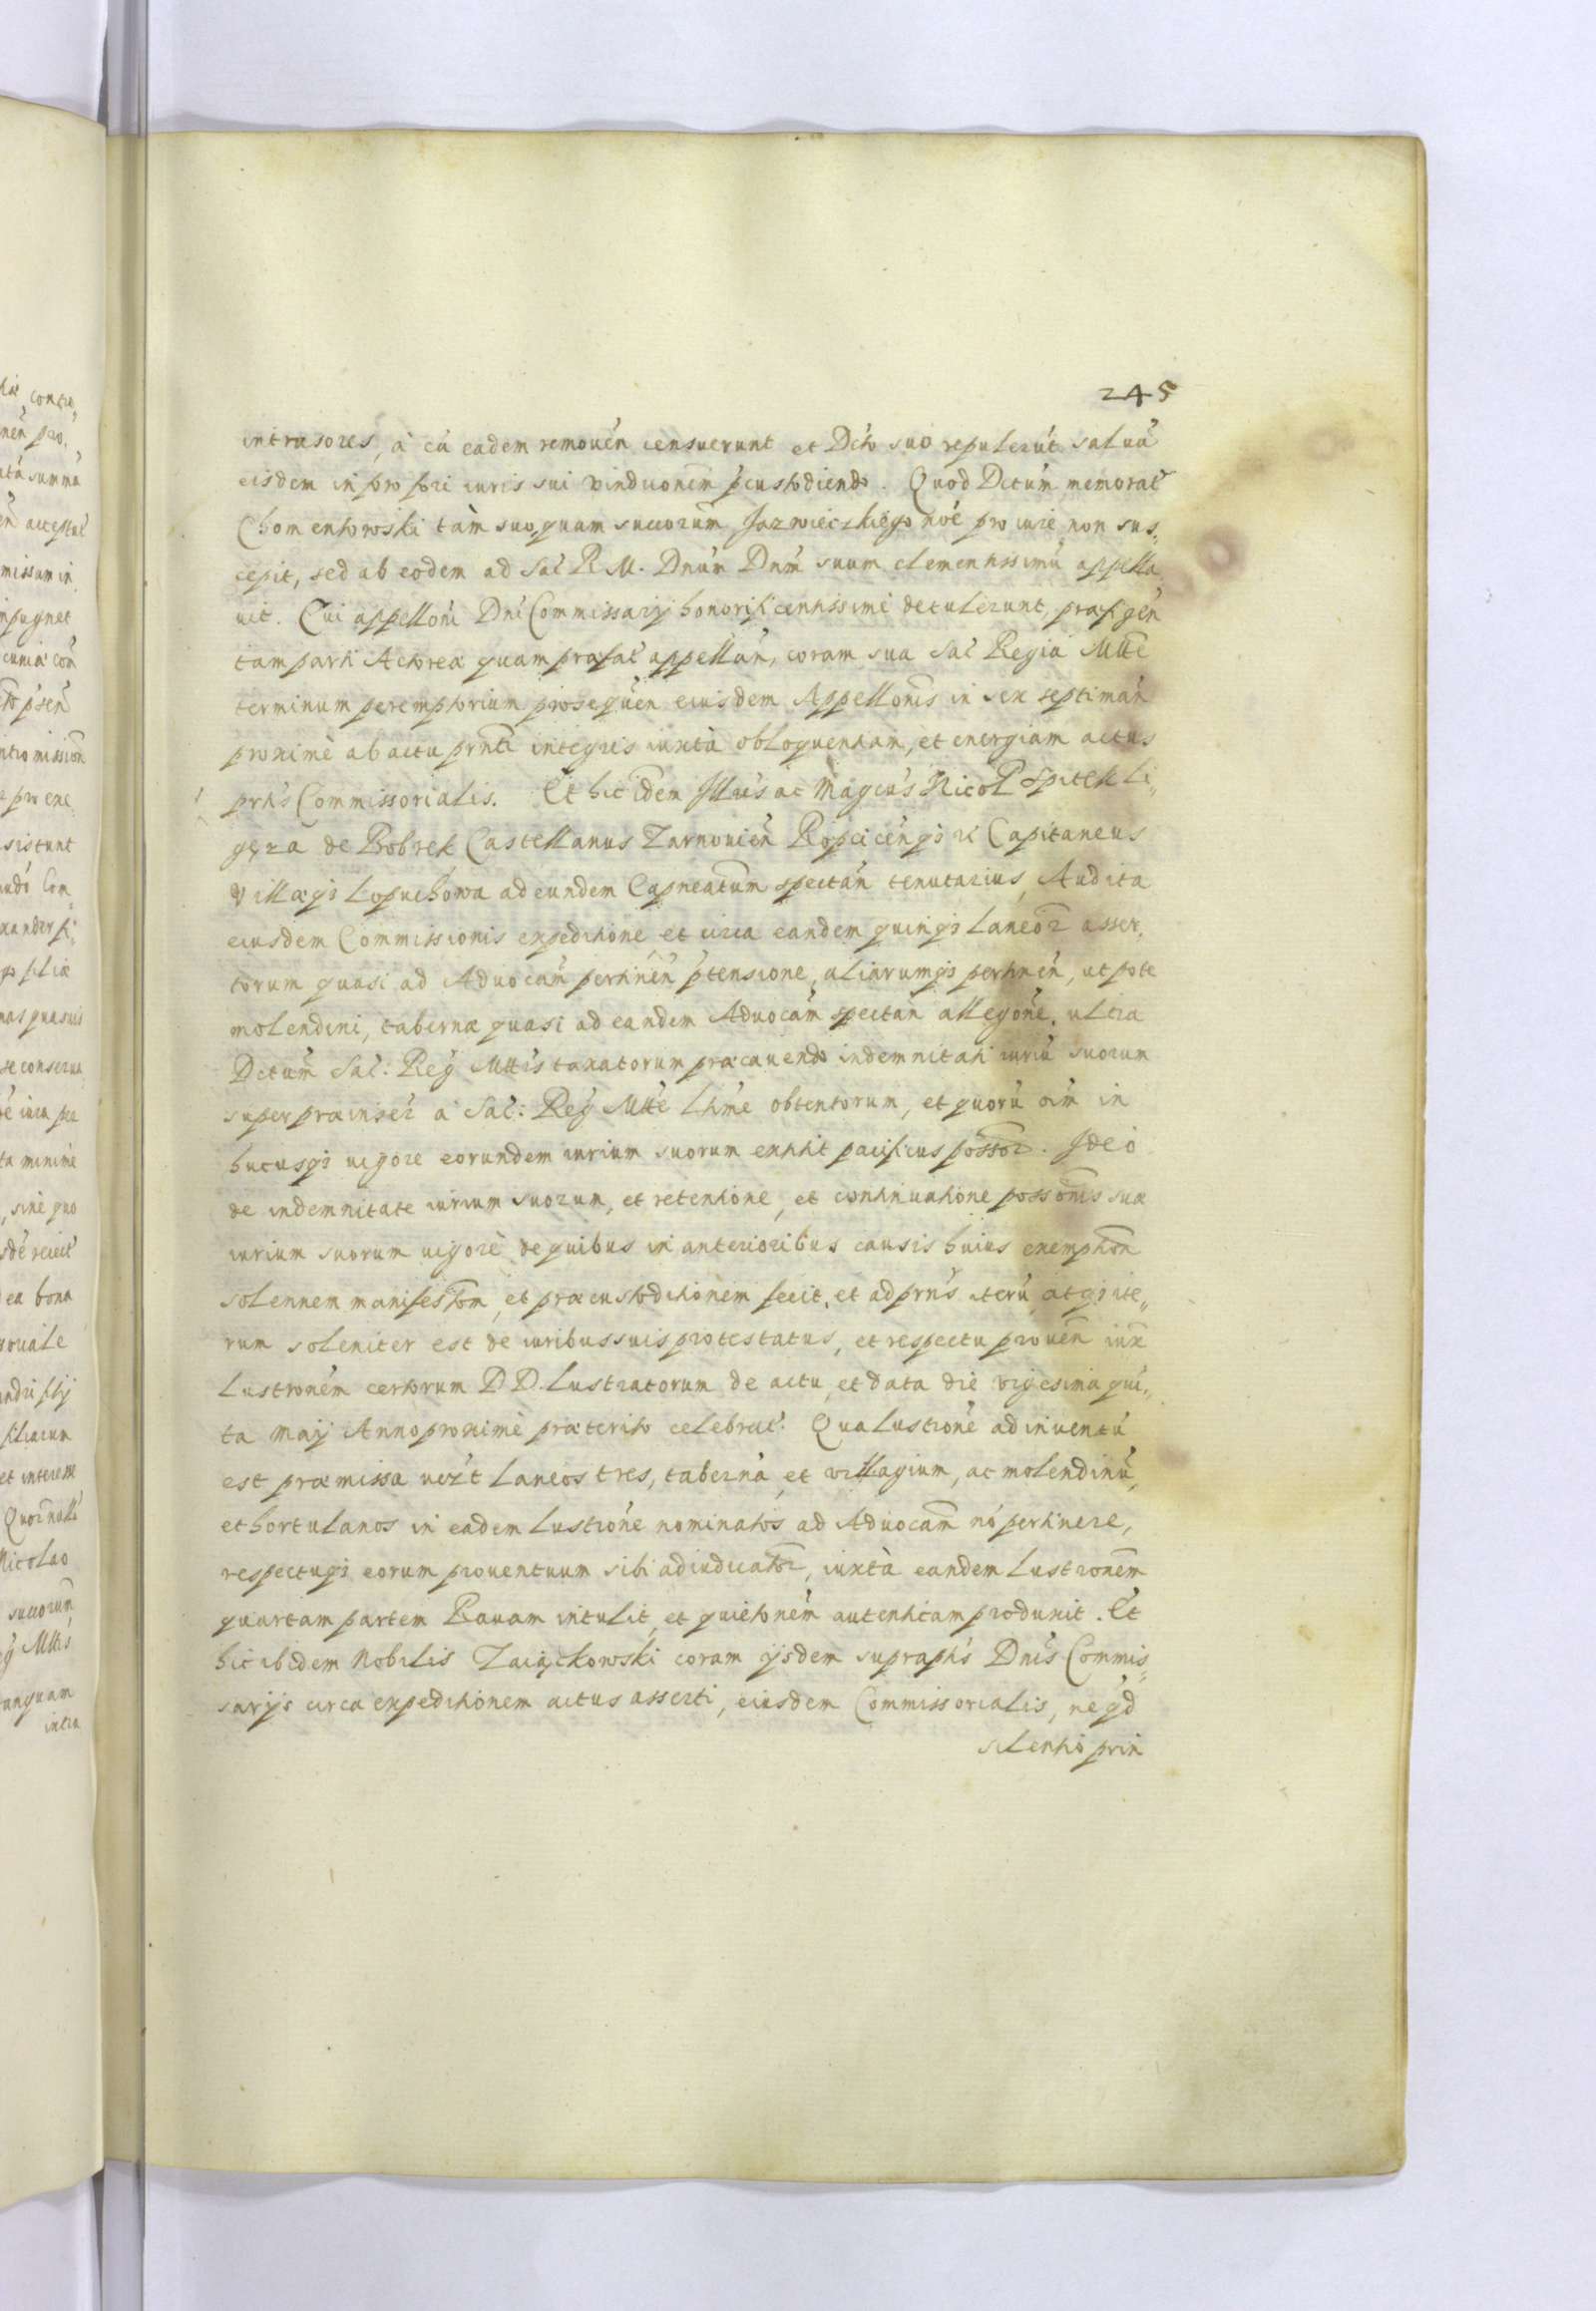 245
intrusores, à eà eadem remouén censuerunt et Dcto suo repulerút saluá
eisdem in foro fori iuris sui vindiconem pcustodiendo. Quod Dctúm memorat
Chomentowski tàm suo, quam succorum Jazwieczkiego noé pro iure non sus„
cepit, sed ab eodem ad Sac R. M. Dnúm Dnm suum clementissimú appella
uit. Cui appelloni Dni Commissarij honorificentissimè detulerunt, præfigén
tam parti Actoreæ quam præfat appellán, coram sua Sac Regia Mtte
terminum peremptorium prosequén eiusdem Appellonis in sex septimán
proximè ab actu prnti integris iuxtà obloquentiam, et energiam actus
prtis Commissorialis. Et hic idem Jllus ac Magcus Nicol Spitek Li„
gęza de Bobrek Castellanus Zarnouien Ropcicengs re Capitaneus
villæqs Lopuchowa ad eundem Capneatum spectán tenutarius, Audita
eiusdem Commissionis expeditione, et circa eandem quinqs Laneor asser„
torum quasi ad Aduocam pertinén ptensione, aliarumqs pertinén, utpote
molendini, tabernæ quasi ad eandem Aduocam spectán allegone, ultra
Dctum Sac: Reg Mttis taxatorum præcauendo indemnitati iuriú suorum
super præinser à Sac: Reg Mtte Lttime obtentorum, et quorú oim in
hucusqs uigore eorundem iurium suorum extitit pacificus possor. Jdeo
de indemnitate iurium suorum, et retentione, et continuatione possonis suæ
iurium suorum uigorè de quibus in anterioribus causis huius exemptiom
solennem manifestiom, et præcustoditionem fecit, et ad prns iterú, atqs ite„
rum soleniter est de iuribus suis protestatus, et respectu prouén iux
Lustroném certorum D D. Lustratorum de actu, et data die vigesima qui„
ta Maij Anno proximè præterito celebrat. Qua Lustrone adinuentú
est præmissa uozt Laneos tres, tabernà, et villagium, ac molendinú,
et hortulanos in eadem Lustrone nominatos ad Aduocam nó pertinere,
respectuqs eorum prouentuum sibi adiudicator, iuxtà eandem Lustronem
quartam partem Rauam intulit, et quietoném autenticam produxit. Et
hic ibidem Nobilis Zaiączkowski coram ijsdem supraphs Dnis Commis„
sarijs circa expeditionem actus asserti, eiusdem Commissorialis, ne qd
silentio prin